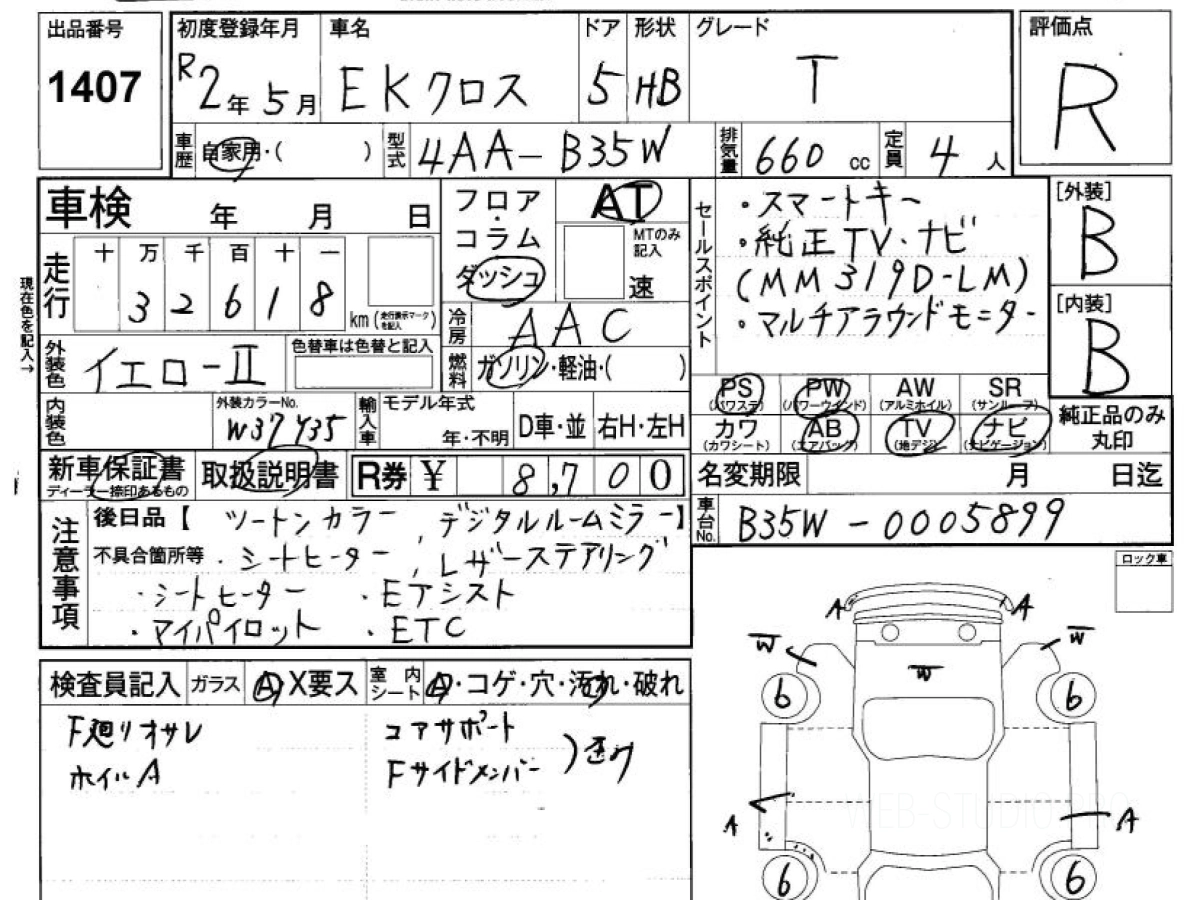 出品番号 初度登録年月 車名 ドア 形状 グレード 評価点
1407 R2年5月 EKクロス 5 HB T R
車歴 自家用・( ) 型式 4AA-B35W 排気量 660 cc 定員 4 人
車検 年 月 日 フロア・コラム ダッシュ AT MTのみ記入 速
セールスポイント ・スマートキー
・純正TV・ナビ
(MM319D-LM)
・マルチアラウンドモニター
[外装] B
[内装] B
現在色を記入→
走行 十 万 千 百 十 一
3 2 6 1 8 km (走行表示マークを記入)
冷房 AAC
外装色 イエロー II 色替車は色替と記入 燃料 ガソリン・軽油・( )
PS (パワステ) PW (パワーウインド) AW (アルミホイル) SR (サンルーフ)
カワ (カワシート) AB (エアバッグ) TV (地デジ) ナビ (ナビゲーション)
純正品のみ丸印
内装色 外装カラーNo. W37Y35 輸入車 モデル年式 年・不明 D車・並 右H・左H
新車保証書 ディーラー捺印あるもの 取扱説明書 R券 ¥ 8,700 名変期限 月 日迄
車台No. B35W-0005899
注意事項 後日品【 ツートンカラー , デジタルルームミラー】
不具合箇所等 ・シートヒーター , レザーステアリング
・シートヒーター ・Eアシスト
・マイパイロット ・ETC
ロック車
検査員記入 ガラス A X要ス 室内シート A・コゲ・穴・汚れ・破れ
F廻りオサレ コアサポート
ホイルA Fサイドメンバー ) 歪み
A A
W W
W
6 6
A A
6 6
WEB-STUDIO PRO